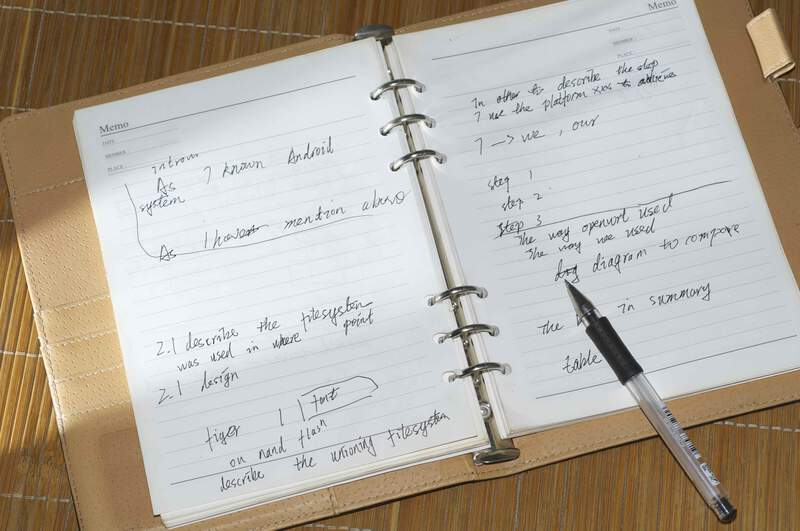 Memo
DATE
NUMBER
PLACE
As I known Android
system
As I have mention above
2.1 describe the filesystem
was used in where point
2.1 design
tiger
on nand flash
describe the unioning filesystem
Memo
DATE
NUMBER
PLACE
In other to describe the step
I use the platform xxs to
I -> we, our
step 1
step 2
step 3
The way openwrt used
The way we used
diagram to compare
The in summary
table